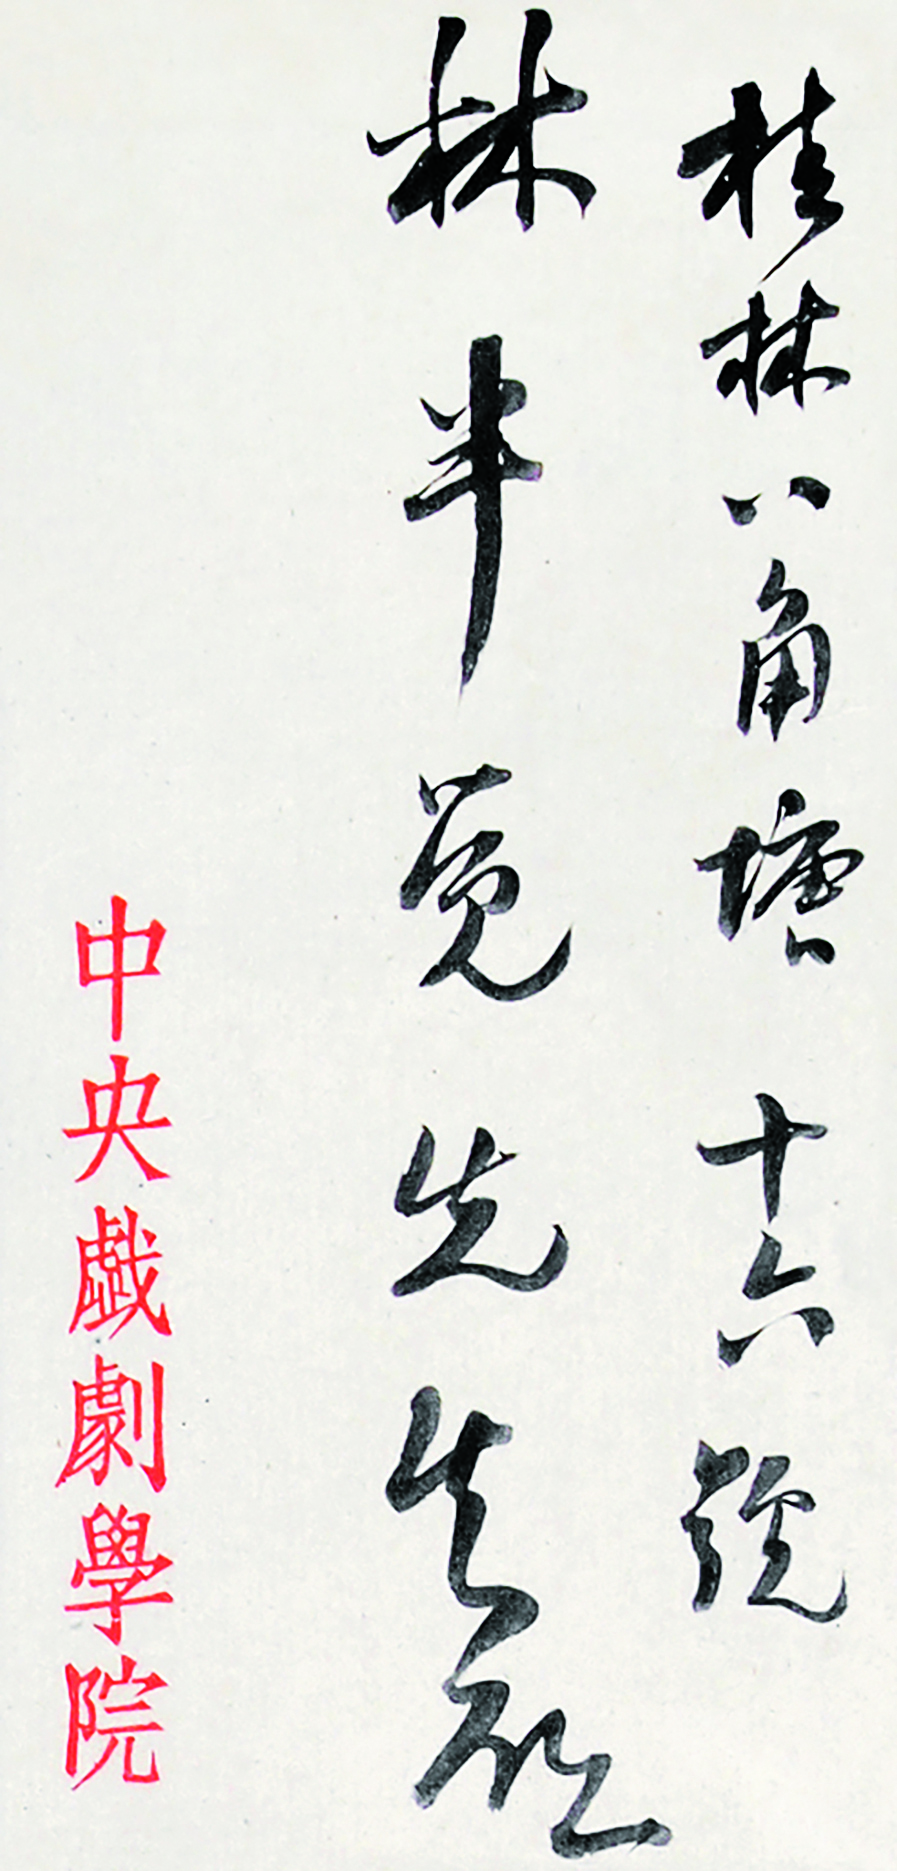 桂林八角塘十六號
林半覺先生啟
中央戯劇學院